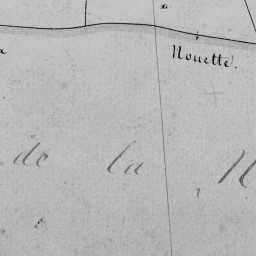 Nouette.
de la N